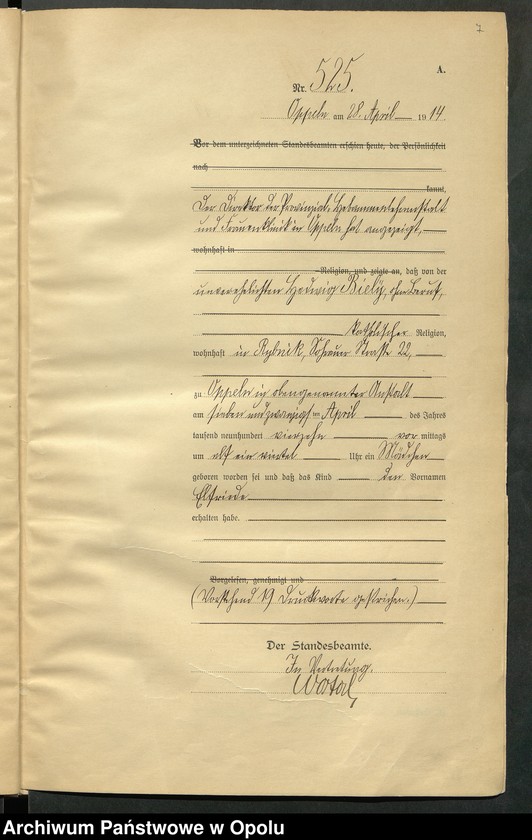 7
A.
Nr. 525.
Oppeln am 28. April 1914.
Vor dem unterzeichneten Standesbeamten erschien heute, der Persönlichkeit
nach
kannt,
Der Direktor der Provinzial-Hebammenlehranstalt
und Frauenklinik in Oppeln hat angezeigt,
wohnhaft in
Religion, und zeigte an, daß von der
unverehelichten Hedwig Biely, ohne Beruf,
katholischer Religion,
wohnhaft in Rybnik, Sohrauer Straße 22,
zu Oppeln in obengenannter Anstalt
am sieben und zwanzigsten April des Jahres
tausend neunhundert vierzehn vor mittags
um elf ein viertel Uhr ein Mädchen
geboren worden sei und daß das Kind den Vornamen
Elfriede
erhalten habe.
Vorgelesen, genehmigt und
(Vorstehend 19 Druckworte gestrichen.)
Der Standesbeamte.
In Vertretung.
Archiwum Państwowe w Opolu